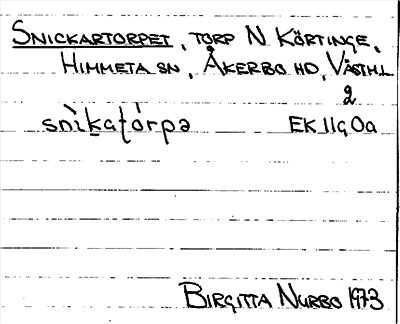 SNICKARTORPET, TORP N KÖRTINGE,
HIMMETA SN, ÅKERBO HD, VÄSTML
2
snìḵaƭórpə EK 11g 0a
BIRGITTA NURBO 1973